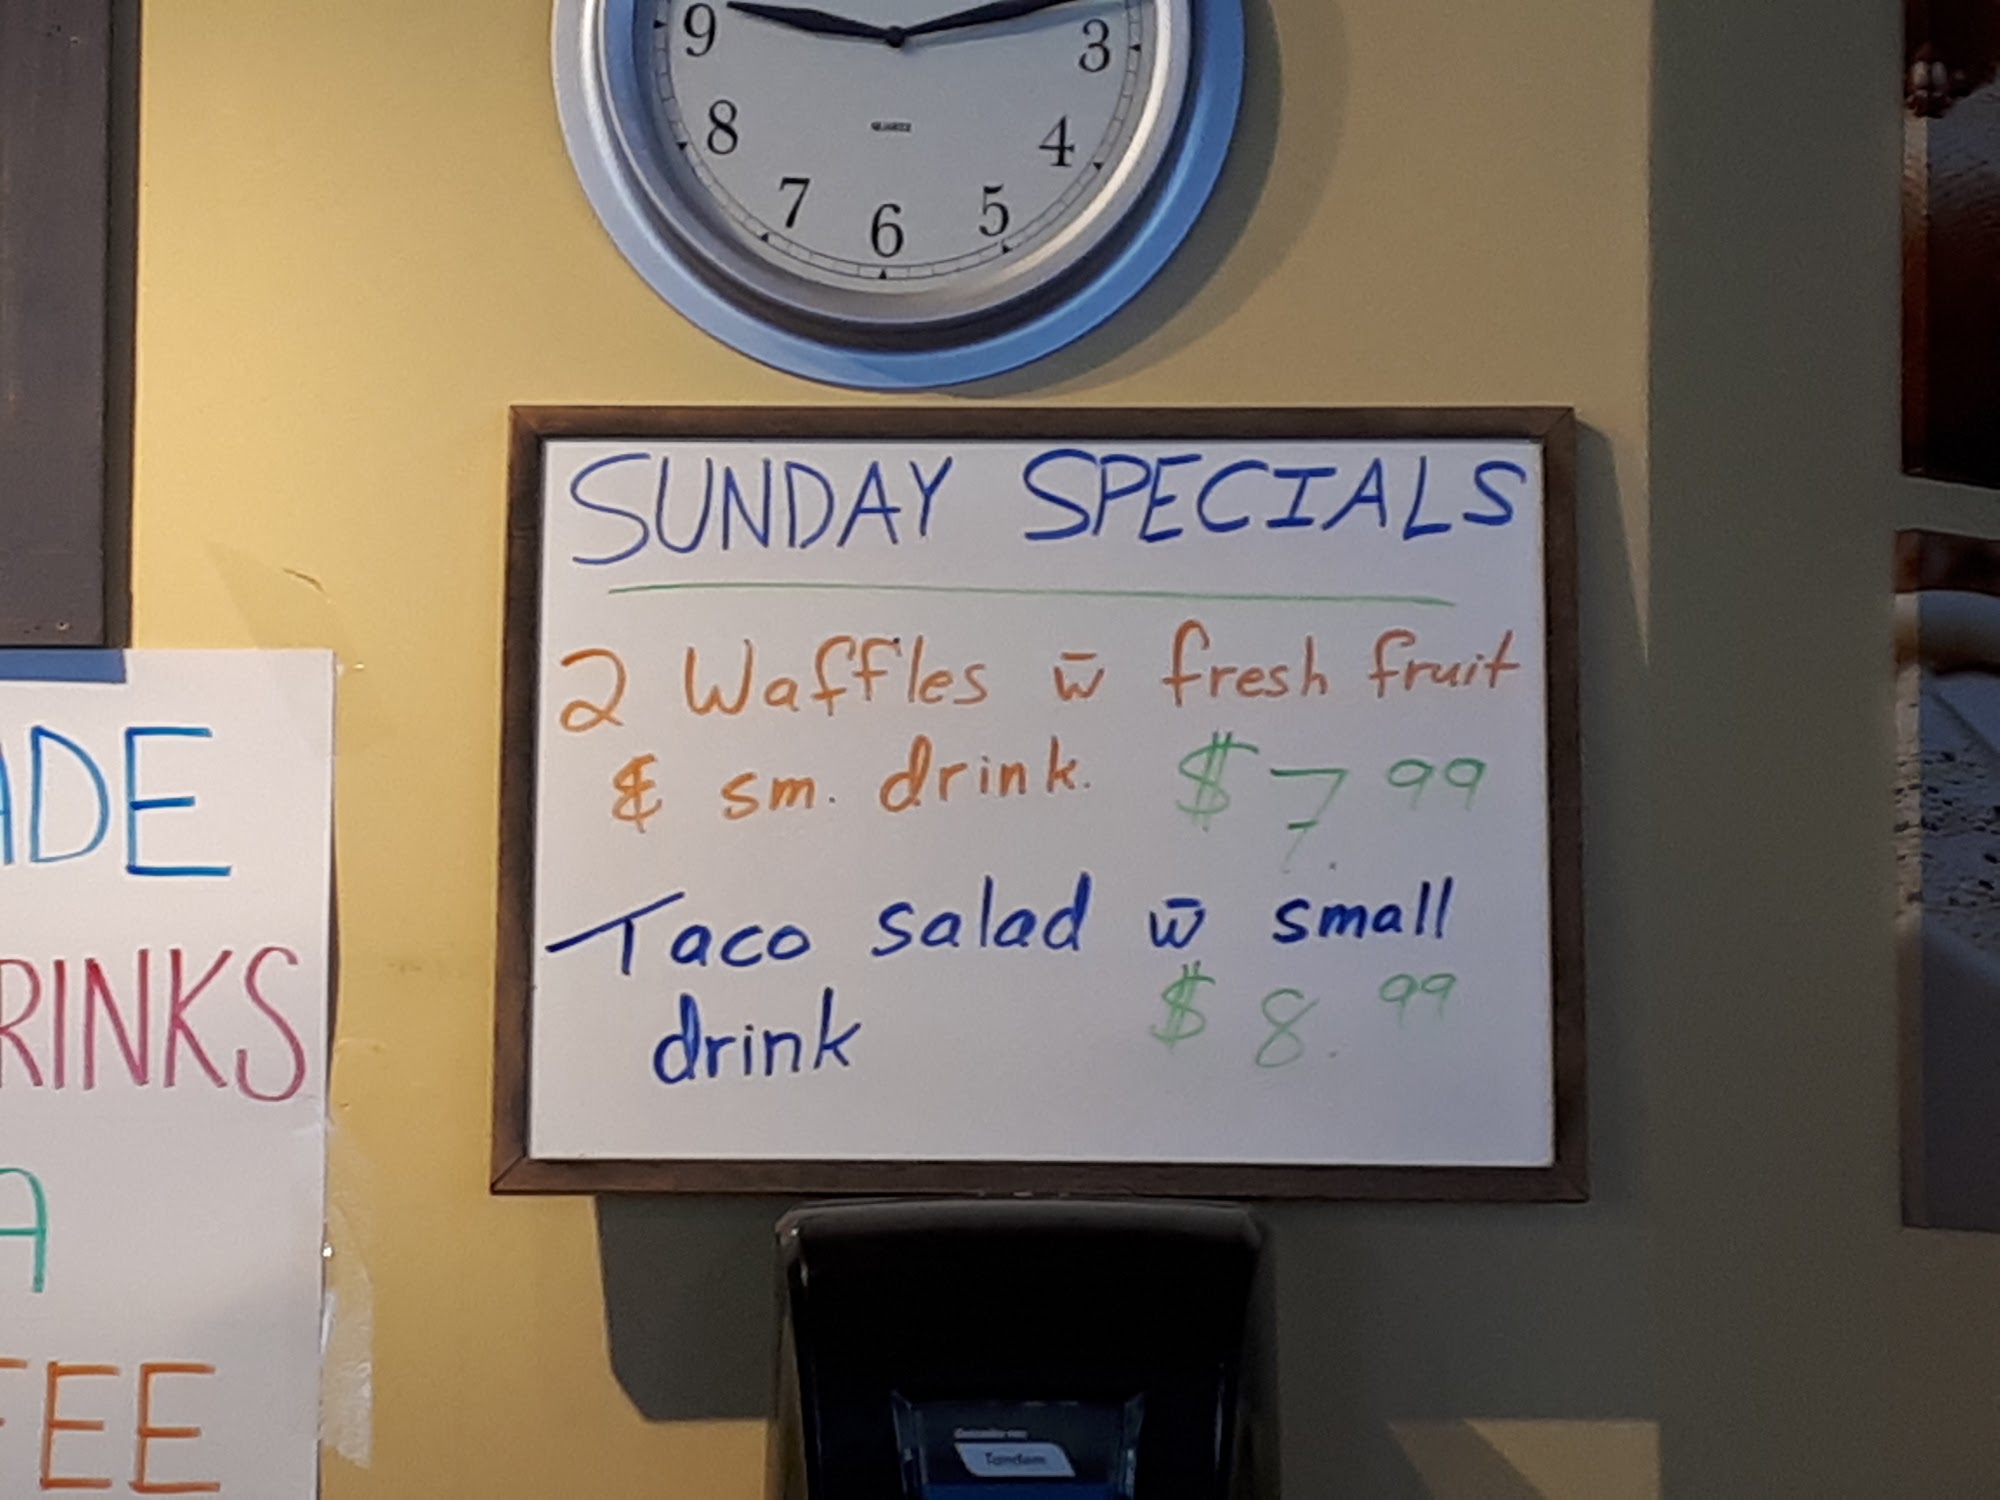 9
3
8
4
QUARTZ
7
5
6
SUNDAY SPECIALS
2 Waffles w̄ fresh fruit
& sm. drink. $7.99
Taco salad w̄ small
drink $8.99
ADE
RINKS
A
FEE
Tandem